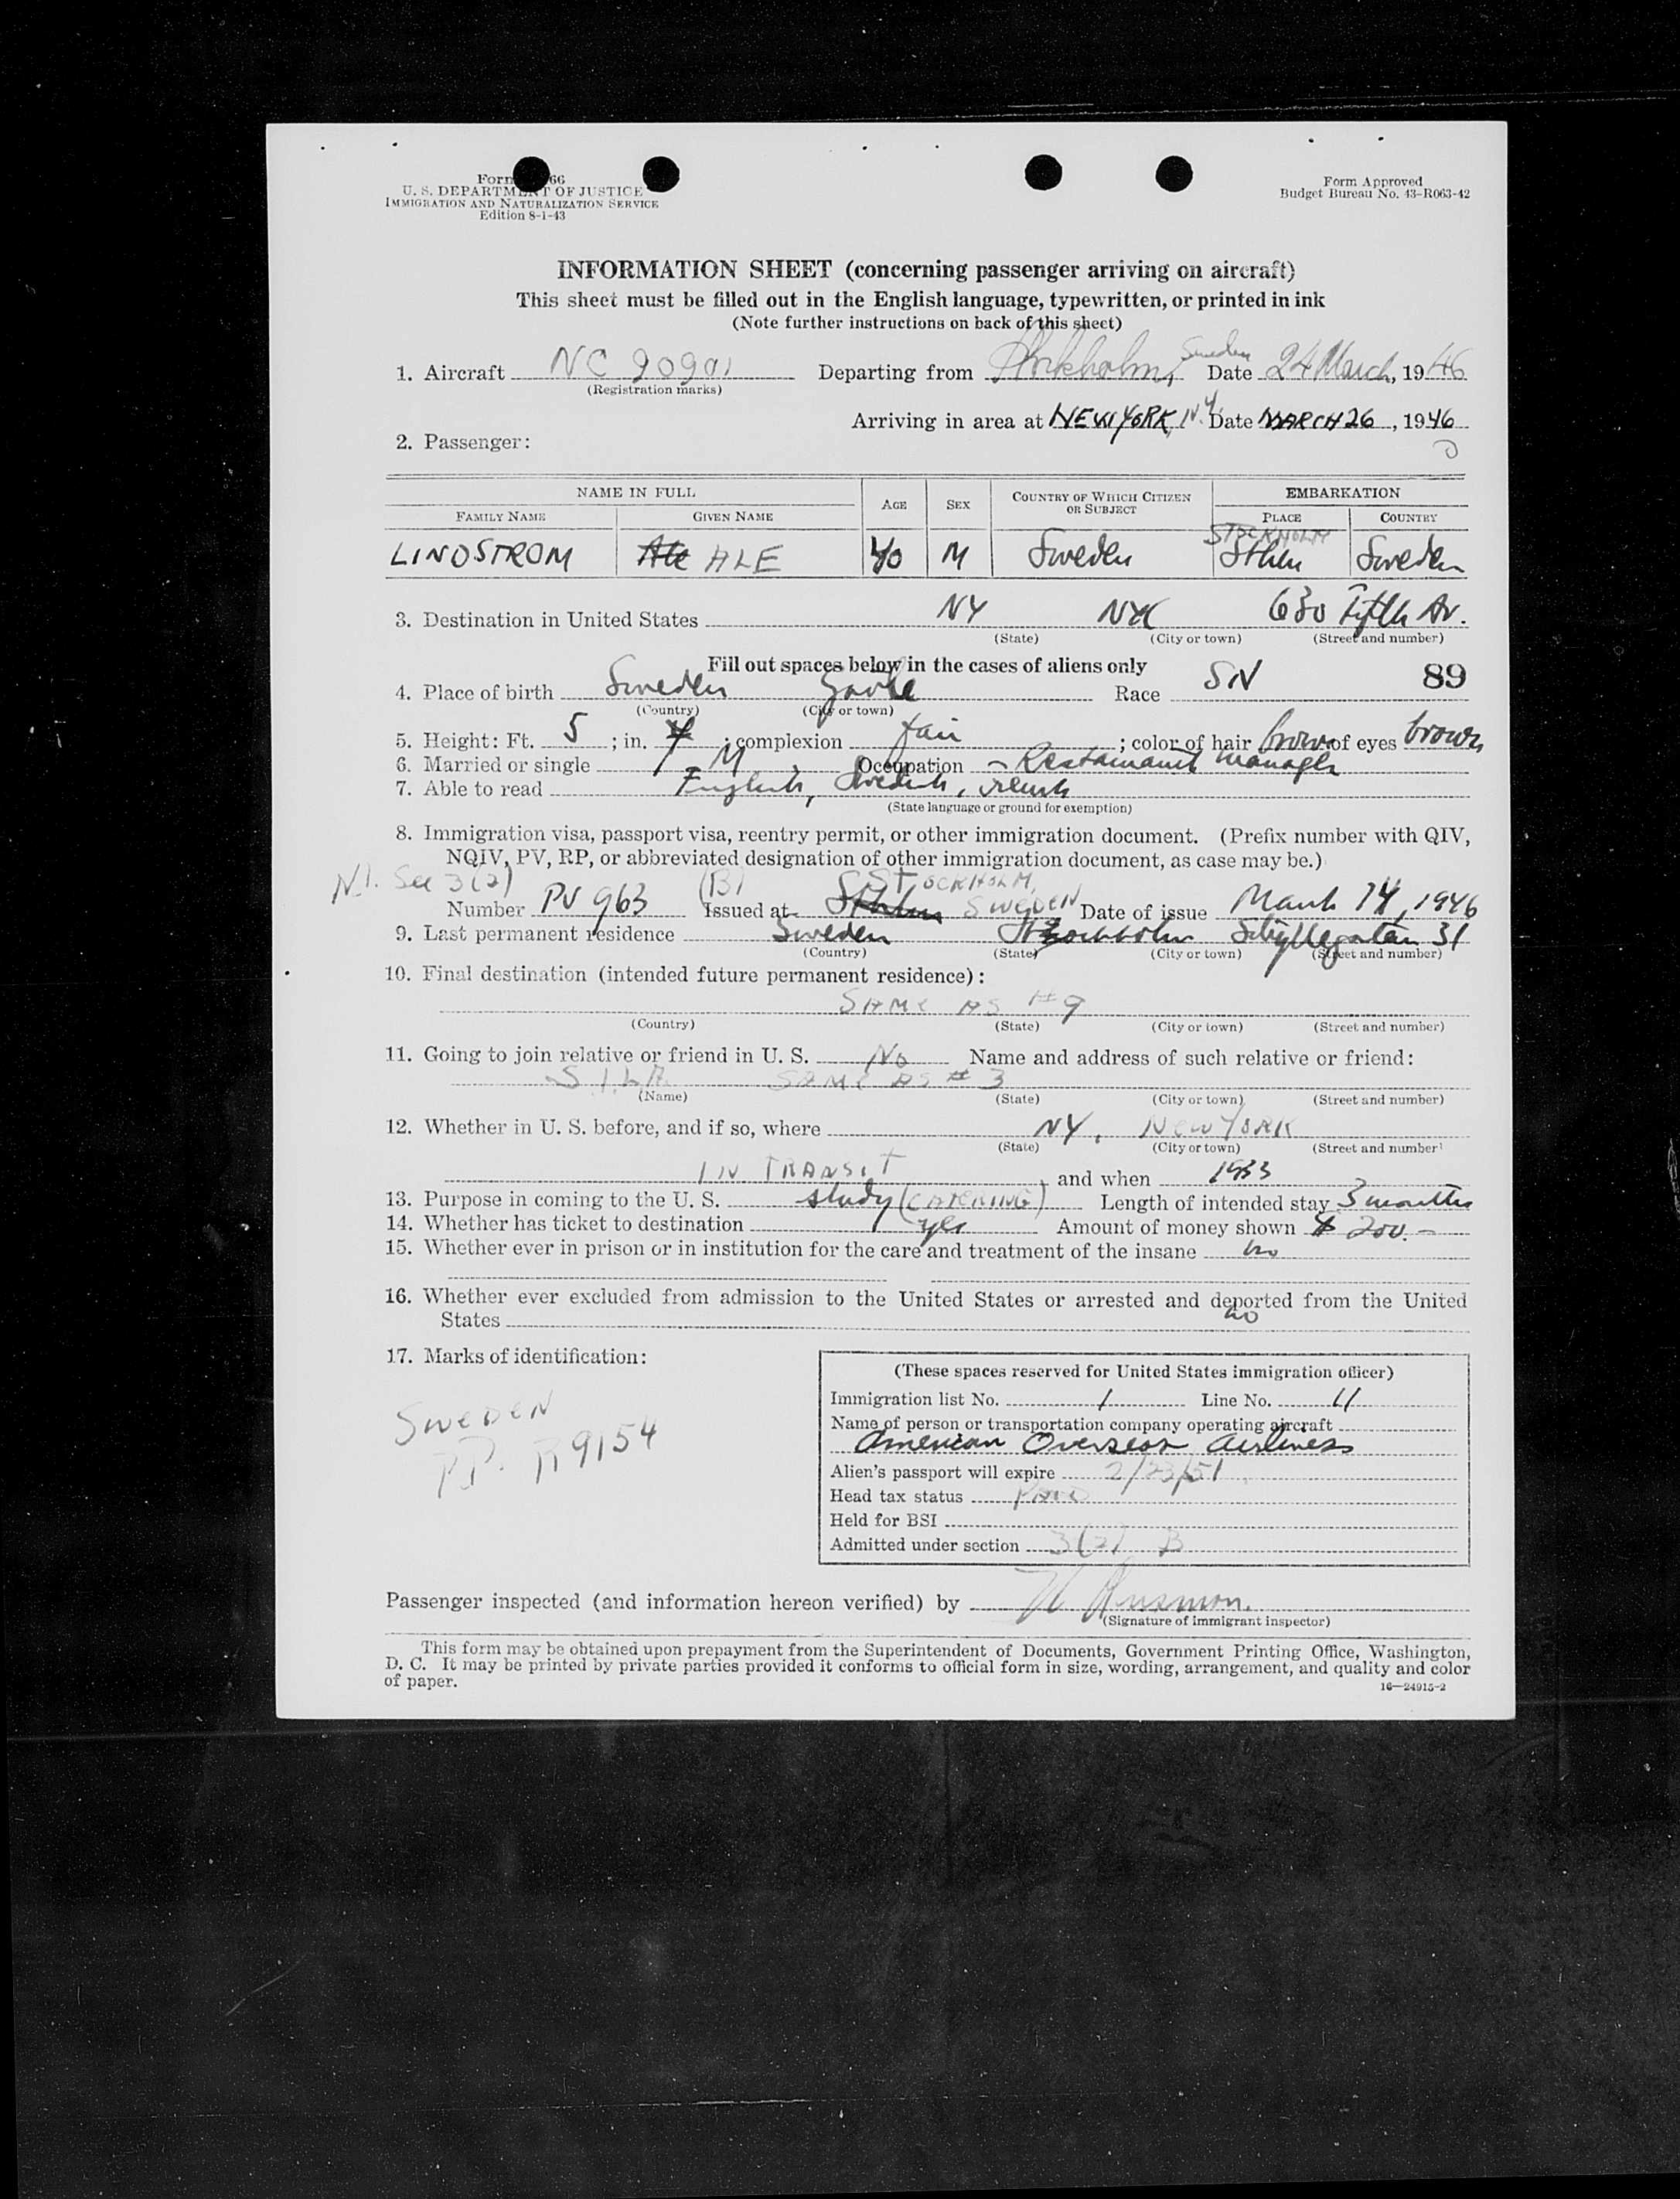 Form 66
U. S. DEPARTMENT OF JUSTICE
IMMIGRATION AND NATURALIZATION SERVICE
Edition 8-1-43
Form Approved
Budget Bureau No. 43-R063-42
INFORMATION SHEET (concerning passenger arriving on aircraft)
This sheet must be filled out in the English language, typewritten, or printed in ink
(Note further instructions on back of this sheet)
1. Aircraft NC 90901 Departing from Stockholm, Sweden Date 24 March, 1946
(Registration marks)
Arriving in area at NEW YORK, N.Y. Date MARCH 26, 1946
2. Passenger:
NAME IN FULL AGE SEX COUNTRY OF WHICH CITIZEN OR SUBJECT EMBARKATION
FAMILY NAME GIVEN NAME PLACE COUNTRY
STOCKHOLM
LINDSTROM ALE 40 M Sweden Sthlm Sweden
3. Destination in United States NY NYC 630 Fifth Av.
(State) (City or town) (Street and number)
Fill out spaces below in the cases of aliens only
4. Place of birth Sweden Gavle Race SN 89
(Country) (City or town)
5. Height: Ft. 5; in. 7; complexion fair; color of hair brown of eyes brown
6. Married or single M Occupation Restaurant manager
7. Able to read English, Swedish, French
(State language or ground for exemption)
8. Immigration visa, passport visa, reentry permit, or other immigration document. (Prefix number with QIV,
NQIV, PV, RP, or abbreviated designation of other immigration document, as case may be.)
N.I. Sec 3(2) (B) STOCKHOLM,
Number PV 963 Issued at Sthlm SWEDEN Date of issue March 14, 1946
9. Last permanent residence Sweden Stockholm 31
(Country) (State) (City or town) (Street and number)
10. Final destination (intended future permanent residence):
SAME AS #9
(Country) (State) (City or town) (Street and number)
11. Going to join relative or friend in U. S. No Name and address of such relative or friend:
S.I.L.A. SAME AS #3
(Name) (State) (City or town) (Street and number)
12. Whether in U. S. before, and if so, where NY, NEW YORK
(State) (City or town) (Street and number)
IN TRANSIT, and when 1933
13. Purpose in coming to the U. S. study (CATERING) Length of intended stay 3 months
14. Whether has ticket to destination yes Amount of money shown $ 200.-
15. Whether ever in prison or in institution for the care and treatment of the insane no
16. Whether ever excluded from admission to the United States or arrested and deported from the United
States no
17. Marks of identification:
SWEDEN
PP. R9154
(These spaces reserved for United States immigration officer)
Immigration list No. 1 Line No. 11
Name of person or transportation company operating aircraft
American Overseas Airlines
Alien's passport will expire 2/23/51
Head tax status PAID
Held for BSI
Admitted under section 3(2) B
Passenger inspected (and information hereon verified) by
(Signature of immigrant inspector)
This form may be obtained upon prepayment from the Superintendent of Documents, Government Printing Office, Washington,
D. C. It may be printed by private parties provided it conforms to official form in size, wording, arrangement, and quality and color
of paper.
16—24915-2